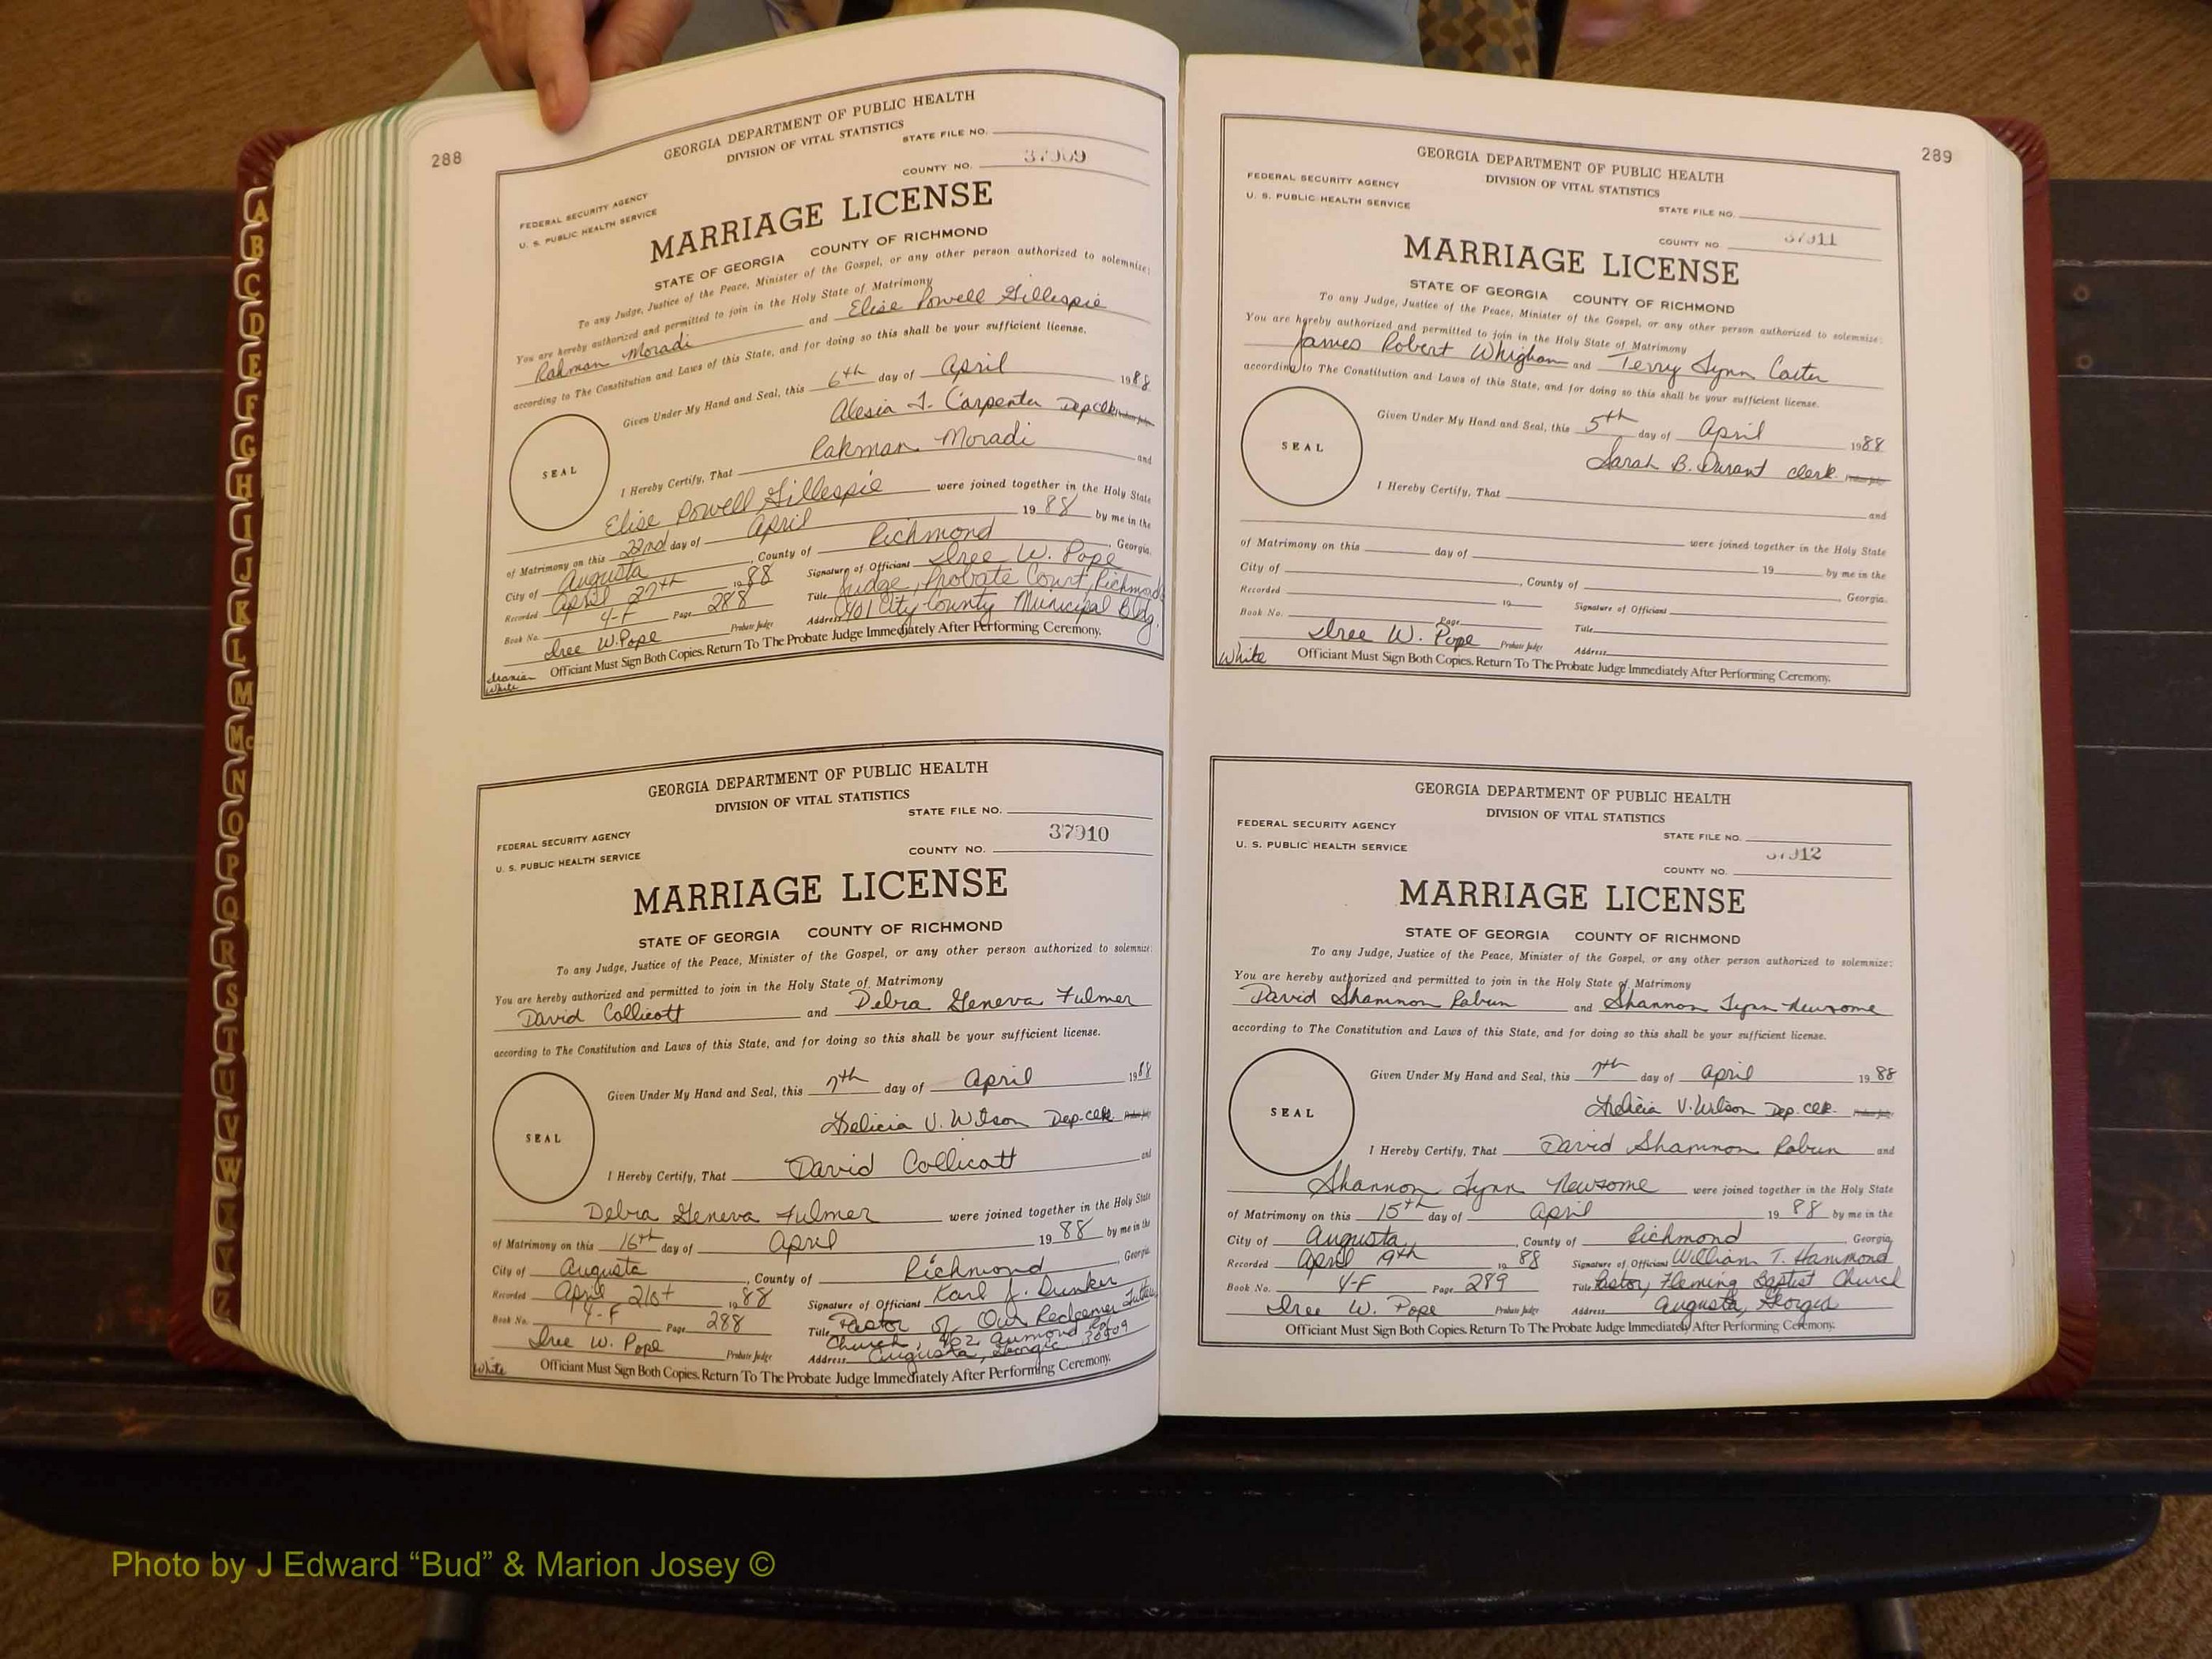 288
GEORGIA DEPARTMENT OF PUBLIC HEALTH
DIVISION OF VITAL STATISTICS
STATE FILE NO.
COUNTY NO. 37909
FEDERAL SECURITY AGENCY
U. S. PUBLIC HEALTH SERVICE
MARRIAGE LICENSE
STATE OF GEORGIA COUNTY OF RICHMOND
To any Judge, Justice of the Peace, Minister of the Gospel, or any other person authorized to solemnize:
You are hereby authorized and permitted to join in the Holy State of Matrimony
Rahman Moradi and Elise Powell Gillespie
according to The Constitution and Laws of this State, and for doing so this shall be your sufficient license.
Given Under My Hand and Seal, this 6th day of April 1988
Alesia J. Carpenter Dep clk
SEAL
I Hereby Certify, That Rahman Moradi and
Elise Powell Gillespie were joined together in the Holy State
of Matrimony on this 22nd day of April 19 88 by me in the
City of Augusta, County of Richmond, Georgia.
Recorded April 27th 1988 Signature of Officiant Isree W. Pope
Book No. 4-F Page 288 Title Judge, Probate Court, Richmond
Isree W. Pope Probate Judge Address 401 City County Municipal Bldg.
Officiant Must Sign Both Copies. Return To The Probate Judge Immediately After Performing Ceremony.
White
GEORGIA DEPARTMENT OF PUBLIC HEALTH
DIVISION OF VITAL STATISTICS
STATE FILE NO.
COUNTY NO. 37910
FEDERAL SECURITY AGENCY
U. S. PUBLIC HEALTH SERVICE
MARRIAGE LICENSE
STATE OF GEORGIA COUNTY OF RICHMOND
To any Judge, Justice of the Peace, Minister of the Gospel, or any other person authorized to solemnize:
You are hereby authorized and permitted to join in the Holy State of Matrimony
David Collicott and Debra Geneva Fulmer
according to The Constitution and Laws of this State, and for doing so this shall be your sufficient license.
Given Under My Hand and Seal, this 7th day of April 1988
Felicia V. Wilson Dep. clk
SEAL
I Hereby Certify, That David Collicott and
Debra Geneva Fulmer were joined together in the Holy State
of Matrimony on this 16th day of April 19 88 by me in the
City of Augusta, County of Richmond, Georgia.
Recorded April 21st 1988 Signature of Officiant Karl J. Dunker
Book No. 4-F Page 288 Title Pastor of Our Redeemer
Isree W. Pope Probate Judge Church, 402 Aumond Rd
Address Augusta, Georgia 30909
Officiant Must Sign Both Copies. Return To The Probate Judge Immediately After Performing Ceremony.
White
289
GEORGIA DEPARTMENT OF PUBLIC HEALTH
DIVISION OF VITAL STATISTICS
FEDERAL SECURITY AGENCY
U. S. PUBLIC HEALTH SERVICE
STATE FILE NO.
COUNTY NO 37911
MARRIAGE LICENSE
STATE OF GEORGIA COUNTY OF RICHMOND
To any Judge, Justice of the Peace, Minister of the Gospel, or any other person authorized to solemnize:
You are hereby authorized and permitted to join in the Holy State of Matrimony
James Robert Whigham and Terry Lynn Carter
according to The Constitution and Laws of this State, and for doing so this shall be your sufficient license.
Given Under My Hand and Seal, this 5th day of April 1988
Sarah B. Durant clerk
SEAL
I Hereby Certify, That and
were joined together in the Holy State
of Matrimony on this day of 19 by me in the
City of , County of Georgia.
Recorded 19 Signature of Officiant
Book No. Page Title
Isree W. Pope Probate Judge Address
White Officiant Must Sign Both Copies. Return To The Probate Judge Immediately After Performing Ceremony.
GEORGIA DEPARTMENT OF PUBLIC HEALTH
DIVISION OF VITAL STATISTICS
FEDERAL SECURITY AGENCY
U. S. PUBLIC HEALTH SERVICE
STATE FILE NO.
37912
COUNTY NO.
MARRIAGE LICENSE
STATE OF GEORGIA COUNTY OF RICHMOND
To any Judge, Justice of the Peace, Minister of the Gospel, or any other person authorized to solemnize:
You are hereby authorized and permitted to join in the Holy State of Matrimony
David Shannon Rabun and Shannon Lynn Newsome
according to The Constitution and Laws of this State, and for doing so this shall be your sufficient license.
Given Under My Hand and Seal, this 7th day of April 1988
Felicia V. Wilson Dep. clk.
SEAL
I Hereby Certify, That David Shannon Rabun and
Shannon Lynn Newsome were joined together in the Holy State
of Matrimony on this 15th day of April 19 88 by me in the
City of Augusta, County of Richmond Georgia,
Recorded April 19th 1988 Signature of Officiant William T. Hammond
Book No. 4-F Page 289 Title Pastor, Fleming Baptist Church
Isree W. Pope Probate Judge Address Augusta, Georgia
Officiant Must Sign Both Copies. Return To The Probate Judge Immediately After Performing Ceremony.
A
B
C
D
E
F
G
H
I
J
K
L
M
Mc
N
O
P
Q
R
S
T
U
V
W
X
Y
Z
Photo by J Edward “Bud” & Marion Josey ©